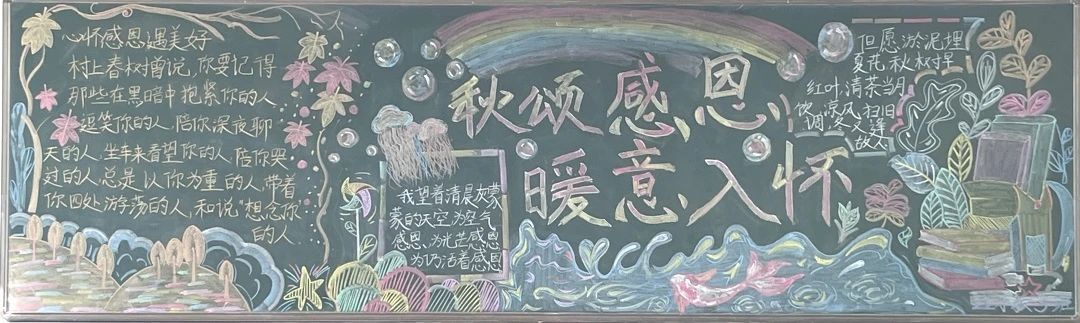 心怀感恩遇美好
村上春树曾说，你要记得
那些在黑暗中抱紧你的人
逗笑你的人，陪你深夜聊
天的人，坐车来看望你的人，陪你哭
过的人，总是以你为重的人，带着
你四处游荡的人，和说"想念你"
的人
秋颂感恩
暖意入怀
我望着清晨灰蒙
蒙的天空，为空气
感恩，为光芒感恩
为仍活着感恩
但愿淤泥埋
夏花，秋树早
红叶，清茶当月
饮，凉风扫旧
调，冬又逢
故人